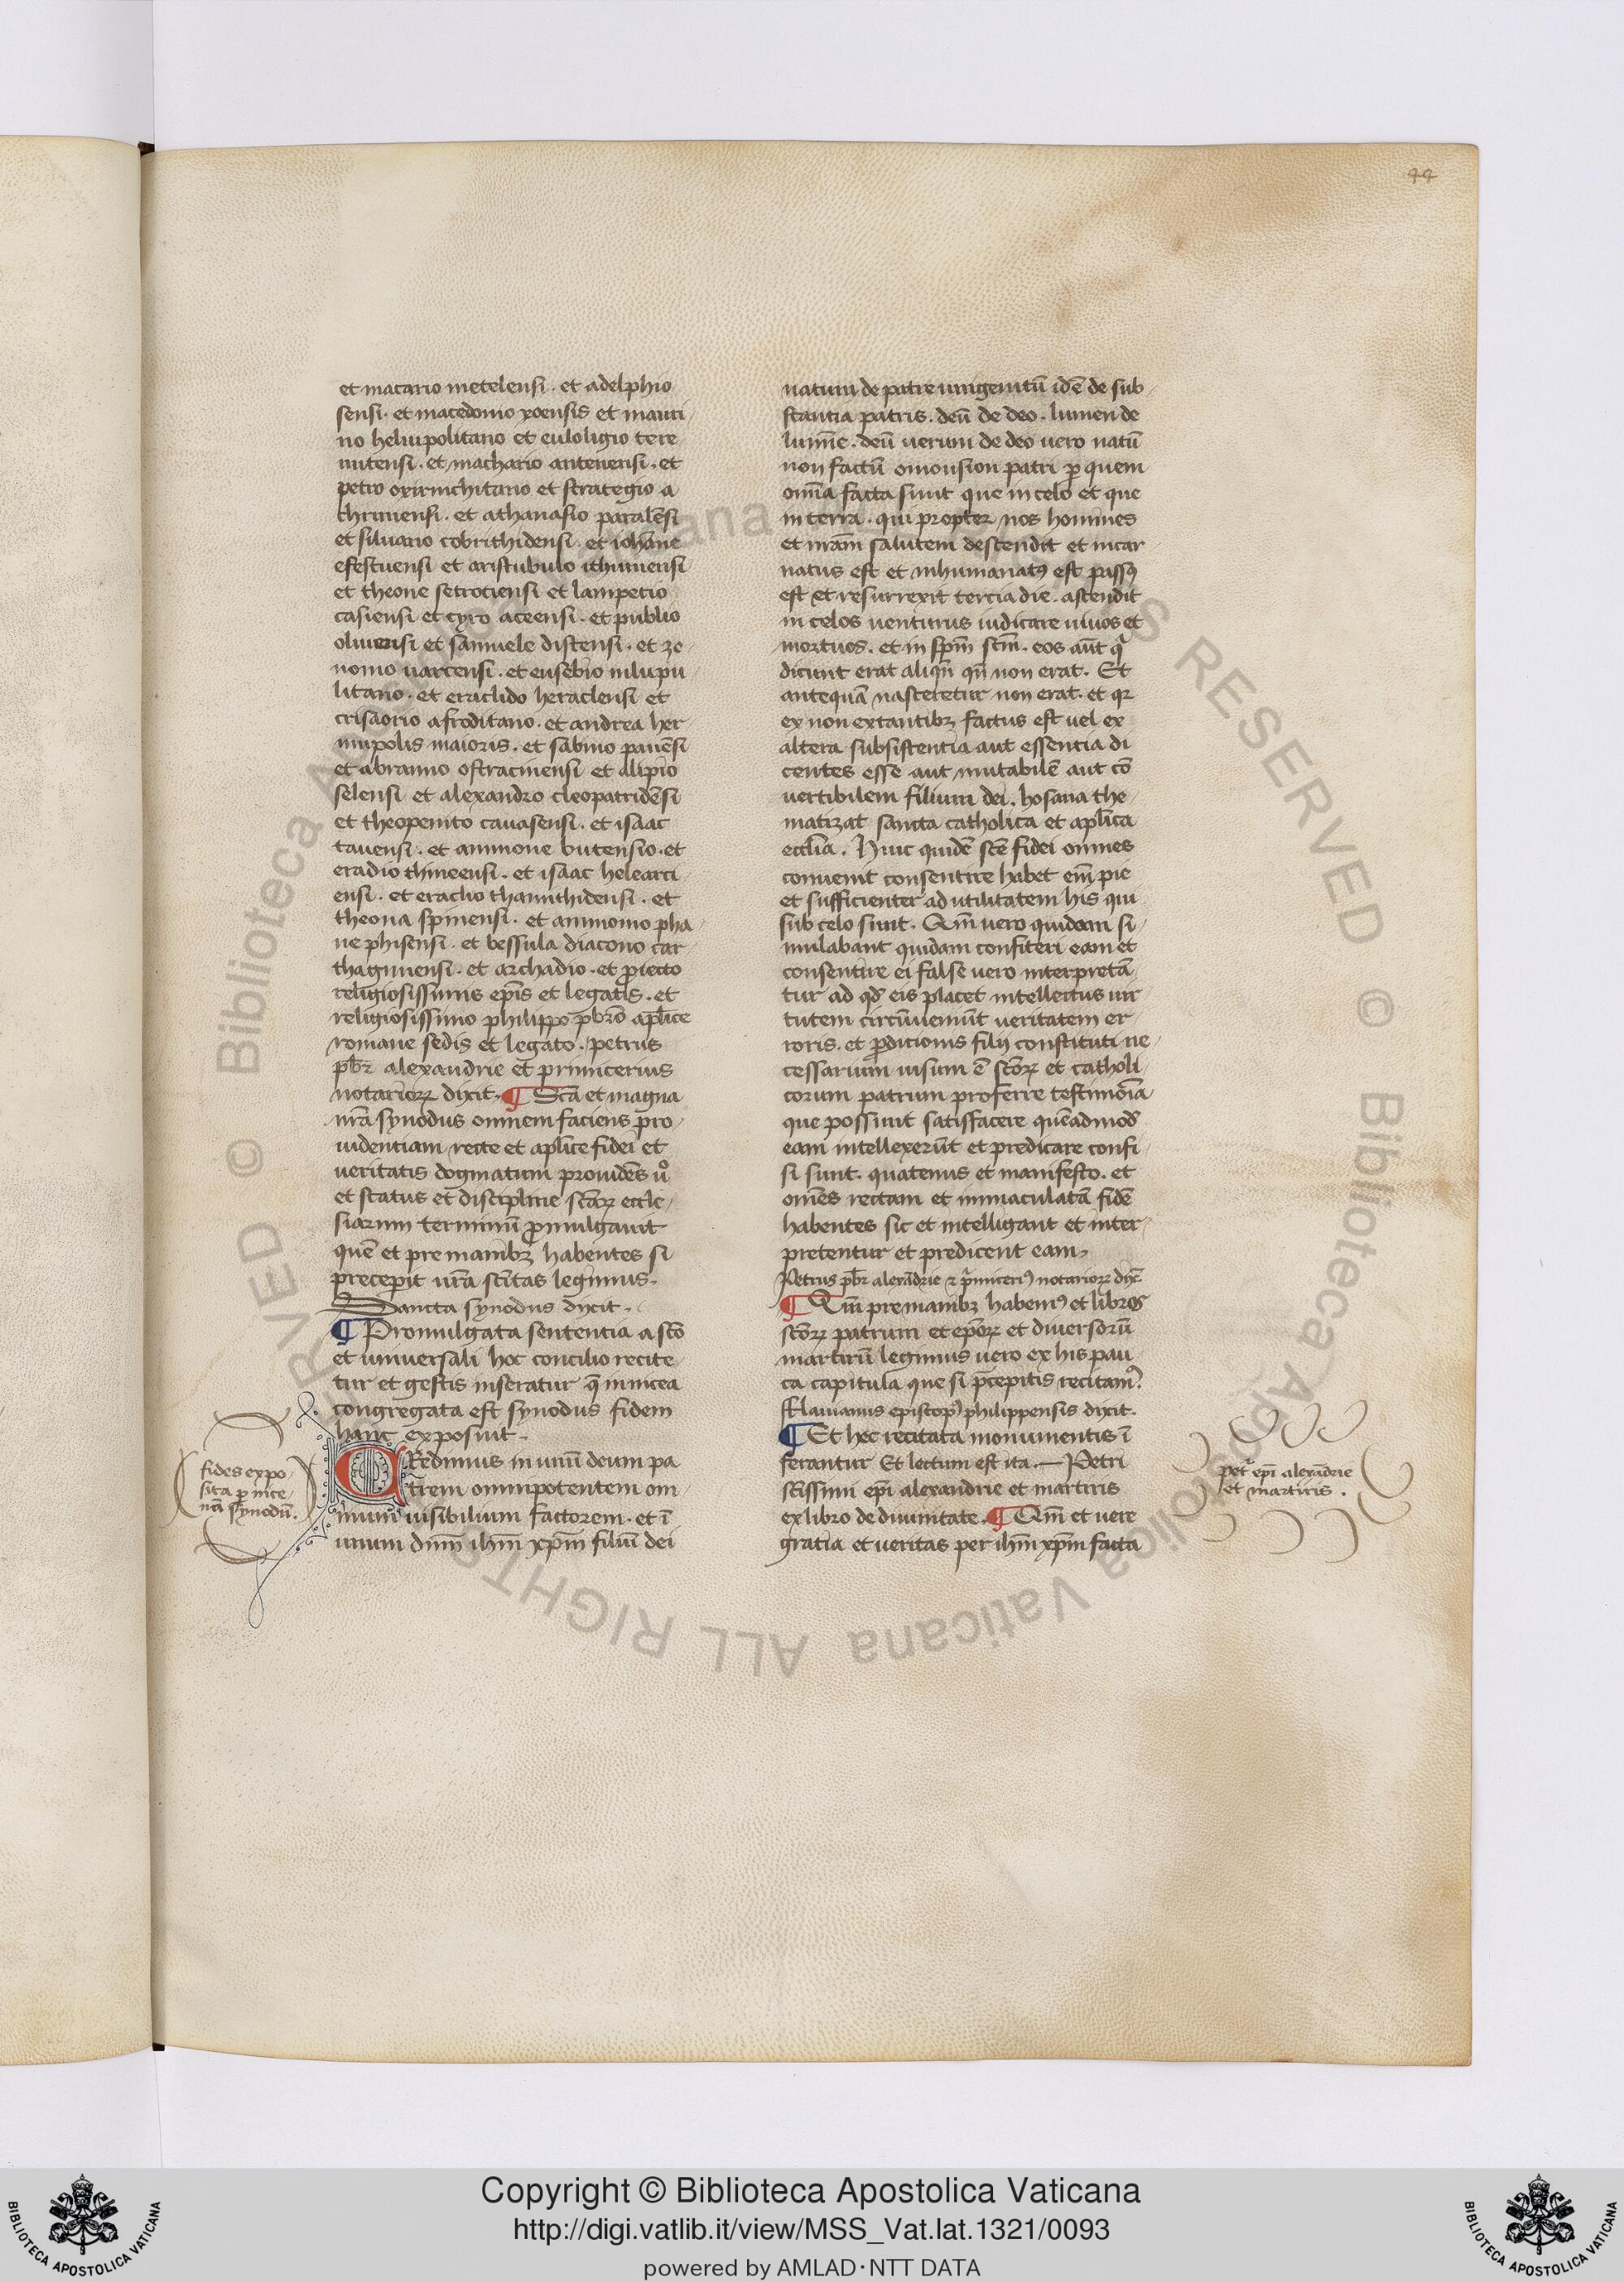 44
et macario metelensi . et adelphio
sensi . et macedonio xoensis et mauri
no heliupolitano et euloligio tere
nutensi . et machario antenensi . et
petro oxirinchitano et strategio a
thrinensi . et athanasio paralēsi
et siluario cobrithidensi . et iohāne
efestuensi et aristubulo ithumensi
et theone setrociensi et lampetio
casiensi et cyro aceensi . et publio
oliuensi et samuele distensi . et ze
nomo uarcensi . et eusebio nilupu
litano . et eraclido heraclensi et
crisaorio afroditano . et andrea her
mupolis maioris . et sabino panēsi
et abramio ostracinensi et alipio
selensi et alexandro cleopatridēsi
et theopenito cauasensi . et isaac
tauensi . et ammone butensio . et
eradio thineensi . et isaac helearci
ensi . et eraclio thamithidensi . et
theona spinensi . et ammonio pha
ne phisensi . et bessula diacono car
thaginensi . et archadio . et proiecto
religiosissimis ep̄is et legatis . et
religiosissimo philippo pb̄ro ap̄lice
romane sedis et legato . petrus
pb̄r alexandrie et primicerius
notarioꝝ dixit . ¶ Sc̄a et magna
nr̄a synodus omnem faciens pro
uidentiam recte et ap̄lice fidei et
ueritatis dogmatum prouidēs uͦ
et status et discipline sc̄oꝝ eccle
siarum terminū ꝓmulgauit
quē et pre manibꝫ habentes si
precepit ur̄a sc̄itas legimus .
Sancta synodus dixit .
¶ Promulgata sententia a sc̄o
et uniuersali hoc concilio recite
tur et gestis inseratur q̄ in nicea
congregata est synodus fidem
hanc exposuit .
CRedimus in unū deum pa
trem omnipotentem om
nium uisibilium factorem . et ī
unum dn̄m ih̄m xp̄m filiū dei
fides expo
sita ꝑ nice
nā synodū .
natum de patre unigenitū idē de sub
stantia patris . deū de deo . lumen de
lumīe . deū uerum de deo uero natū
non factū omousion patri ꝑ quem
om̄ia facta sunt que in celo et que
in terra . qui propter nos homines
et nr̄am salutem descendit et incar
natus est et inhumanatꝰ est passꝰ
est et resurrexit tercia die . ascendit
in celos uenturus iudicare uiuos et
mortuos . et in sp̄m sc̄m . eos aūt qⁱ
dicunt erat aliqn̄ qn̄ non erat . Et
antequā nasceretur non erat . et qꝛ
ex non extantibꝫ factus est uel ex
altera subsistentia aut essentia di
centes esse aut mutabilē aut cō
uertibilem filium dei . hosana the
matizat sancta catholica et ap̄lica
eccl̄ia . Huic quidē sc̄e fidei omnes
conuenit consentire habet em̄ pie
et sufficienter ad utilitatem his qui
sub celo sunt . Qm̄ uero quidam si
mulabant quidam confiteri eam et
consentire ei false uero interpretā
tur ad qd̄ eis placet intellectus uir
tutem circūueniūt ueritatem er
roris . et ꝑdicionis filij constituti ne
cessarium uisum ē sc̄oꝝ et catholi
corum patrum proferre testimōia
que possint satisfacere quēadmod̄
eam intellexerūt et predicare confi
si sunt . quatenus et manifesto . et
omēs rectam et immaculatā fidē
habentes sic et intelligant et inter
pretentur et predicent eam .
Petrus pb̄r alexādrie ⁊ pⁱmiceriꝰ notarioꝝ dix̄
¶ Qm̄ pre manibꝫ habemꝰ et libros
sc̄oꝝ patrum et ep̄oꝝ et diuersorū
martirū legimus uero ex his pau
ca capitula que si p̄cepitis recitamꝰ .
Flauianus episcopꝰ philippensis dixit .
¶ Et hec recitata monumentis ī
ferantur Et lectum est ita . — Petri
sc̄issimi ep̄i alexandrie et martiris
ex libro de diuinitate . ¶ Qm̄ et uere
gratia et ueritas per ih̄m xp̄m facta
petⁱ ep̄i alexādrie
et martiris .
Biblioteca Apostolica Vaticana ALL RIGHTS RESERVED ©
Copyright © Biblioteca Apostolica Vaticana
http://digi.vatlib.it/view/MSS_Vat.lat.1321/0093
powered by AMLAD·NTT DATA
BIBLIOTECA APOSTOLICA VATICANA
BIBLIOTECA APOSTOLICA VATICANA